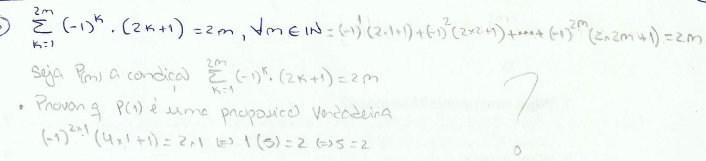 ∑_{k=1}^{2m} (-1)^k . (2k+1) = 2m, ∀m ∈ IN = (-1)^1 (2.1+1) + (-1)^2 (2×2+1) + ....+ (-1)^{2m} (2×2m+1) = 2m
Seja P(m) a condicão ∑_{k=1}^{2m} (-1)^k. (2k+1) = 2m
• Provar q P(1) é uma proposicão verdadeira
(-1)^{2×1} (4×1+1) = 2×1 ⇔ 1(5) = 2 ⇔ 5 = 2
?